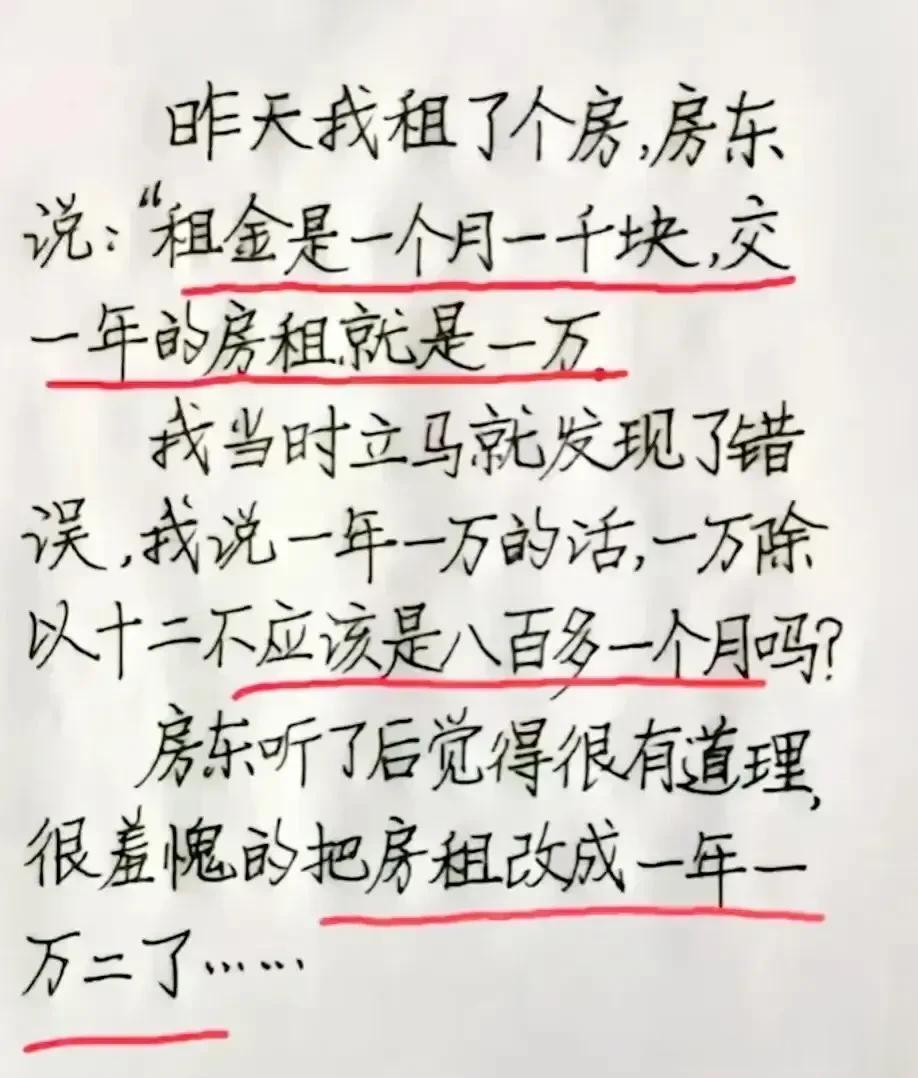 昨天我租了个房,房东
说:“租金是一个月一千块,交
一年的房租就是一万.
我当时立马就发现了错
误,我说一年一万的话,一万除
以十二不应该是八百多一个月吗?
房东听了后觉得很有道理,
很羞愧的把房租改成一年一
万二了……